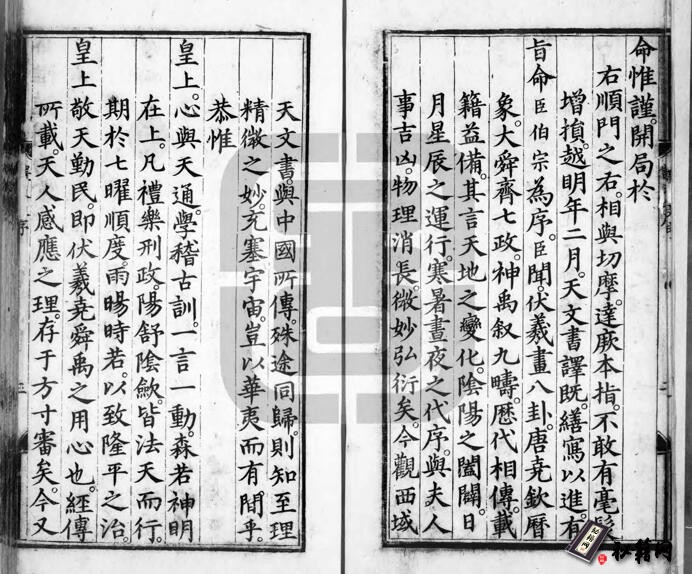 命惟謹。開局於
右順門之右。相與切摩。達厥本指。不敢有毫
增損。越明年二月。天文書譯既。繕寫以進。有
旨命臣伯宗為序。臣聞。伏羲畫八卦。唐堯欽曆
象。大舜齊七政。神禹叙九疇。歷代相傳。載
籍益備。其言天地之變化。陰陽之闔闢。日
月星辰之運行。寒暑晝夜之代序。與夫人
事吉凶。物理消長。微妙弘衍矣。今觀西域
天文書。與中國所傳。殊途同歸。則知至理
精微之妙。充塞宇宙。豈以華夷而有間乎。
恭惟
皇上。心與天通。學稽古訓。一言一動。森若神明
在上。凡禮樂刑政。陽舒陰歛。皆法天而行。
期於七曜順度。雨暘時若。以致隆平之治
皇上敬天勤民。即伏羲堯舜禹之用心也。經傳
所載。天人感應之理。存于方寸審矣。今又
秘籍网